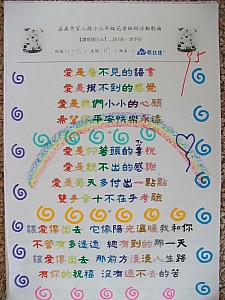 愛是看不見的語言
愛是摸不到的感覺
愛是我們小小的心願
希望你平安快樂永遠
愛是仰著頭的喜悅
愛是說不出的感謝
愛是每天多付出一點點
雙手合十不在乎考驗
讓愛傳出去 它像陽光溫暖我和你
不管有多遙遠 總有到的那一天
讓愛傳出去 那前方漫漫人生路
有你的祝福 沒有過不去的苦
95